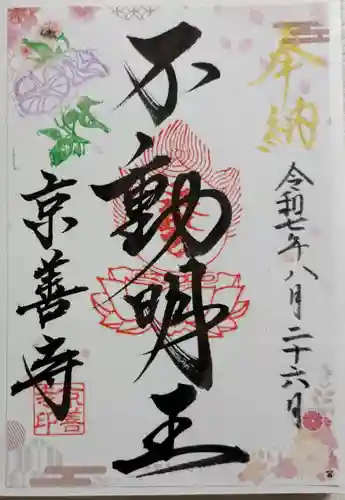 奉納
令和七年八月二十六月
不動明王
京善寺
京善寺印